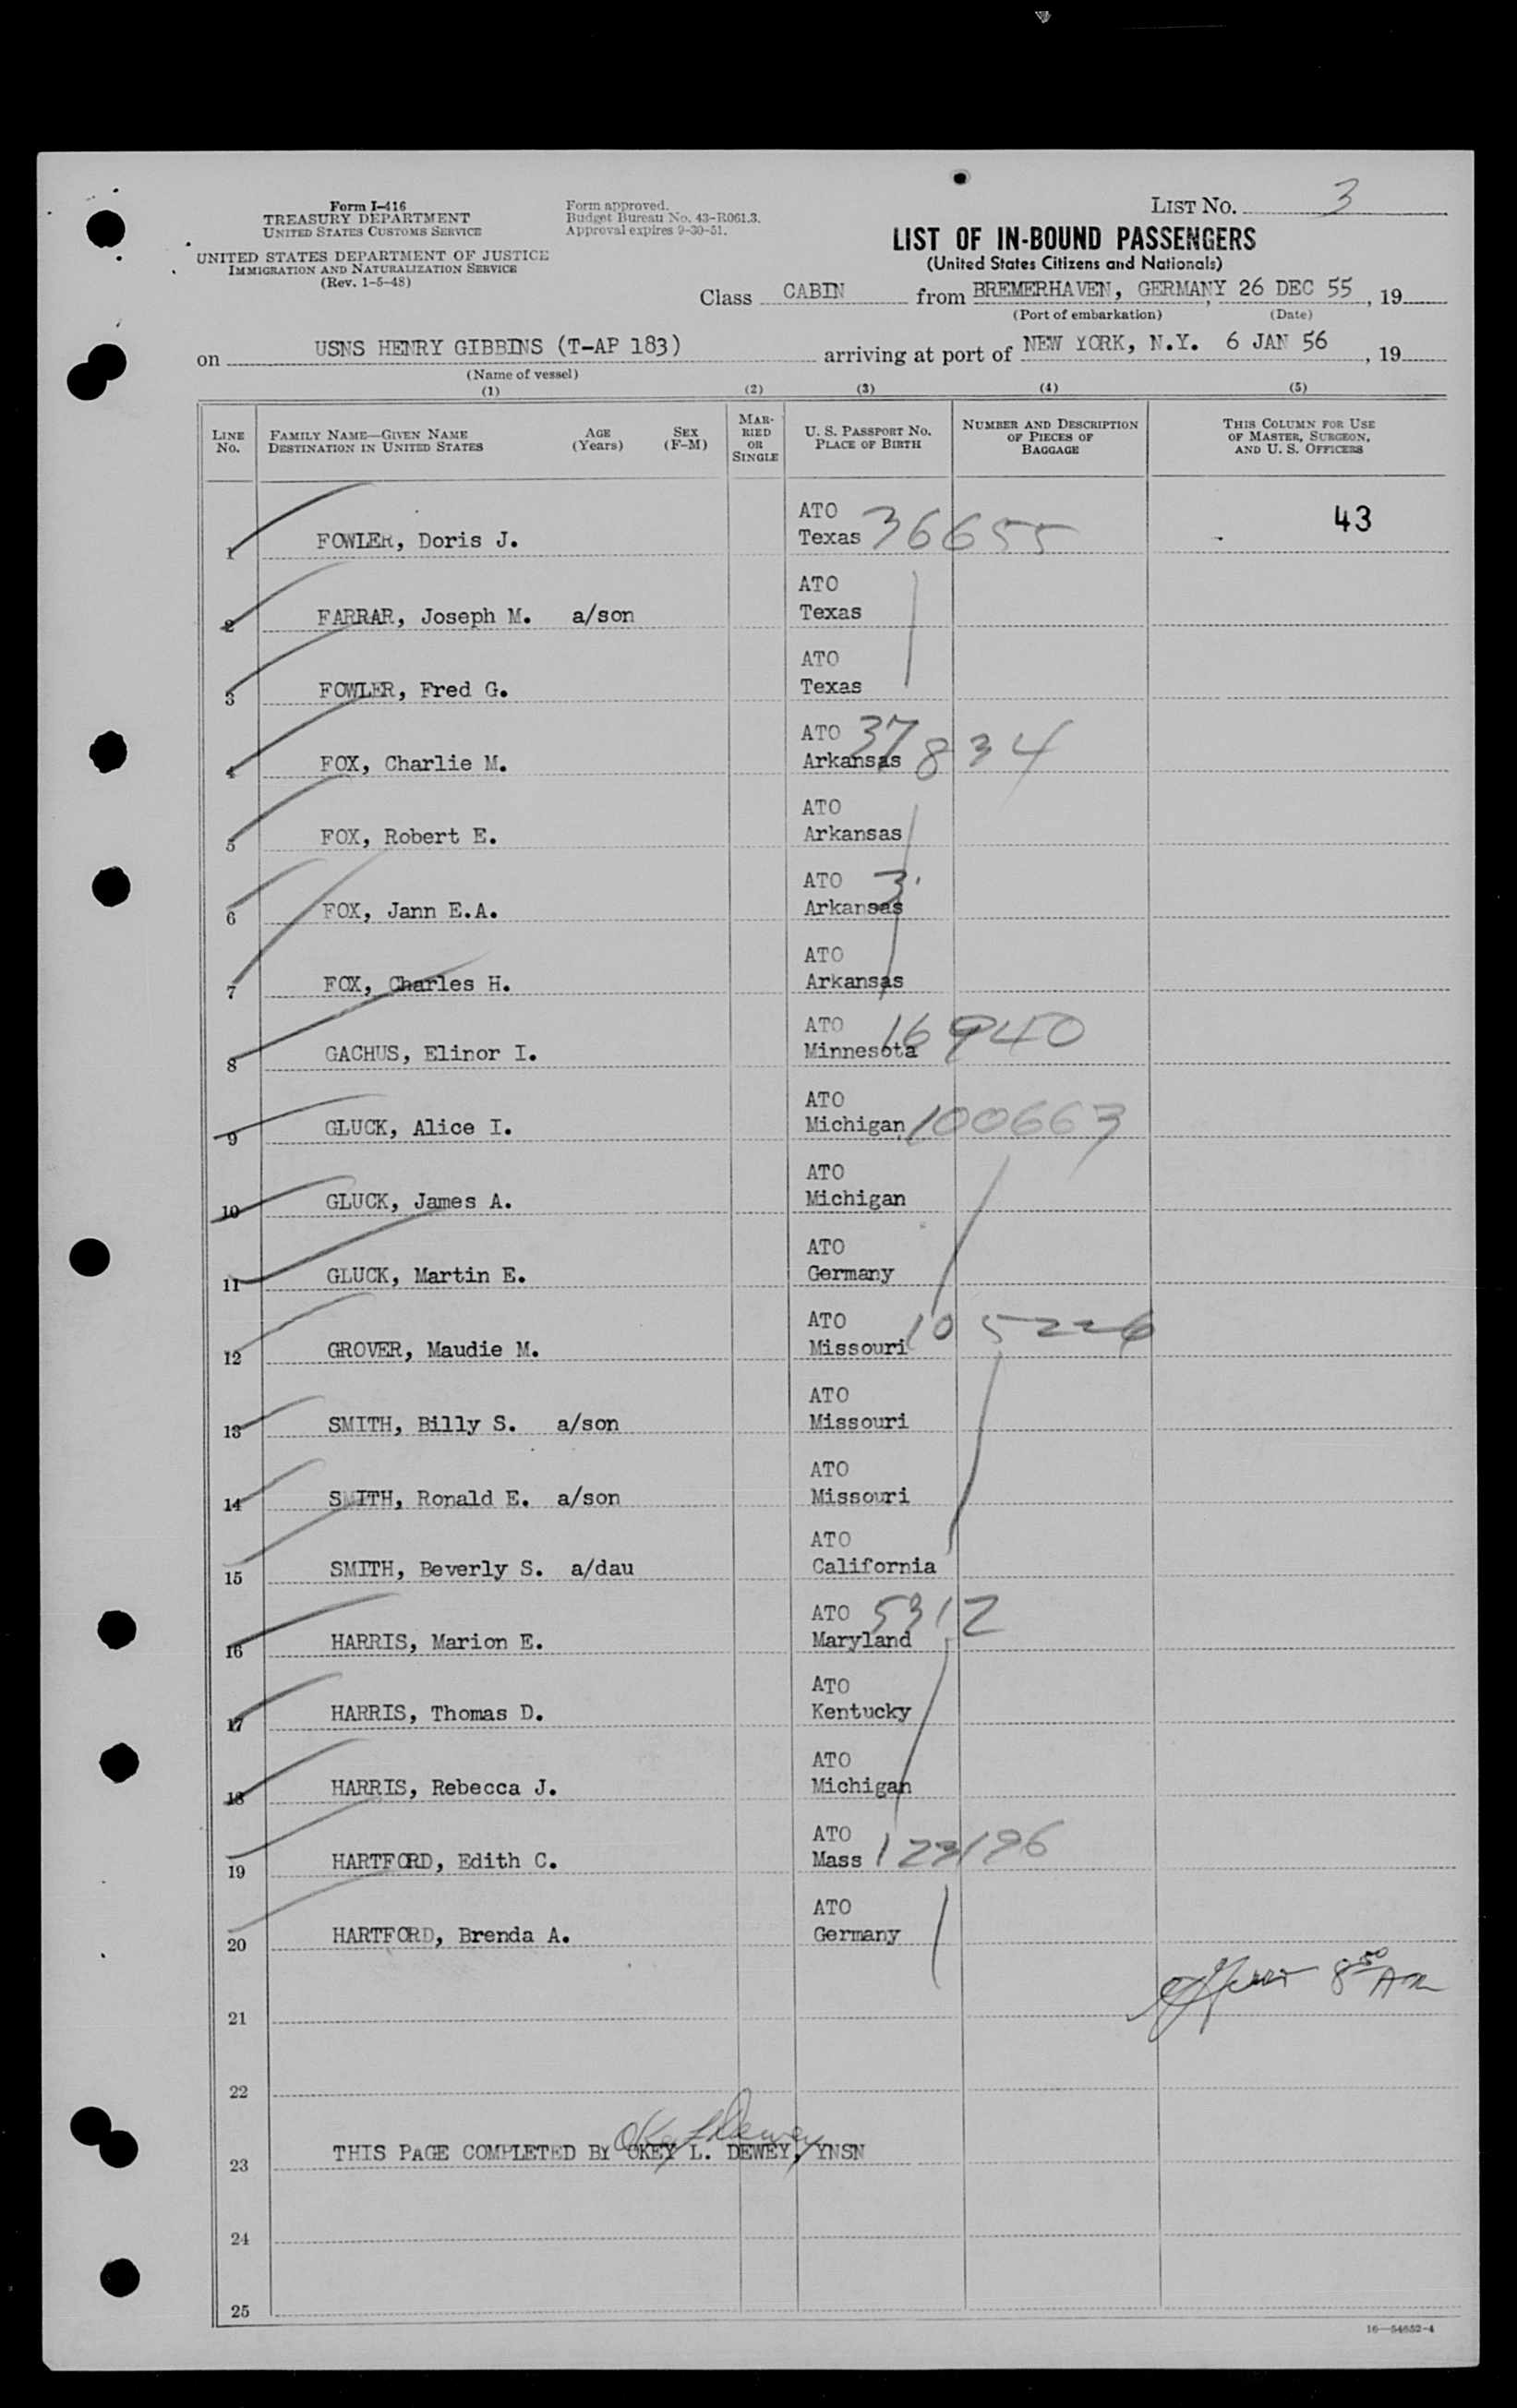 LIST NO. 3
Form I-416
TREASURY DEPARTMENT
UNITED STATES CUSTOMS SERVICE
UNITED STATES DEPARTMENT OF JUSTICE
IMMIGRATION AND NATURALIZATION SERVICE
(Rev. 1-5-48)
Form approved.
Budget Bureau No. 43-R061.3.
Approval expires 9-30-51.
LIST OF IN-BOUND PASSENGERS
(United States Citizens and Nationals)
Class CABIN from BREMERHAVEN, GERMANY, 26 DEC 55, 19
(Port of embarkation) (Date)
on USNS HENRY GIBBINS (T-AP 183) arriving at port of NEW YORK, N.Y. 6 JAN 56, 19
(Name of vessel)
(1) (2) (3) (4) (5)
LINE No. FAMILY NAME—GIVEN NAME DESTINATION IN UNITED STATES AGE (Years) SEX (F-M) MARRIED OR SINGLE U. S. PASSPORT NO. PLACE OF BIRTH NUMBER AND DESCRIPTION OF PIECES OF BAGGAGE THIS COLUMN FOR USE OF MASTER, SURGEON, AND U. S. OFFICERS
ATO 43
1 FOWLER, Doris J. Texas 36655
ATO
2 FARRAR, Joseph M. a/son Texas
ATO
3 FOWLER, Fred G. Texas
ATO 37834
4 FOX, Charlie M. Arkansas
ATO
5 FOX, Robert E. Arkansas
ATO 3
6 FOX, Jann E.A. Arkansas
ATO
7 FOX, Charles H. Arkansas
ATO 16940
8 GACHUS, Elinor I. Minnesota
ATO
9 GLUCK, Alice I. Michigan 100663
ATO
10 GLUCK, James A. Michigan
ATO
11 GLUCK, Martin E. Germany
ATO 105226
12 GROVER, Maudie M. Missouri
ATO
13 SMITH, Billy S. a/son Missouri
ATO
14 SMITH, Ronald E. a/son Missouri
ATO
15 SMITH, Beverly S. a/dau California
ATO 5312
16 HARRIS, Marion E. Maryland
ATO
17 HARRIS, Thomas D. Kentucky
ATO
18 HARRIS, Rebecca J. Michigan
ATO
19 HARTFORD, Edith C. Mass 123196
ATO
20 HARTFORD, Brenda A. Germany
8 50 AM
21
22
Okey L Dewey
23 THIS PAGE COMPLETED BY OKEY L. DEWEY, YNSN
24
25
16—54652-4